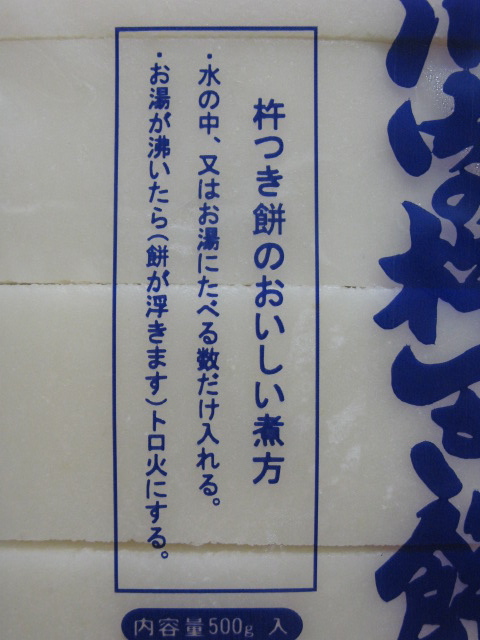 杵つき餅のおいしい煮方
・水の中、又はお湯にたべる数だけ入れる。
・お湯が沸いたら(餅が浮きます)トロ火にする。
内容量500g 入